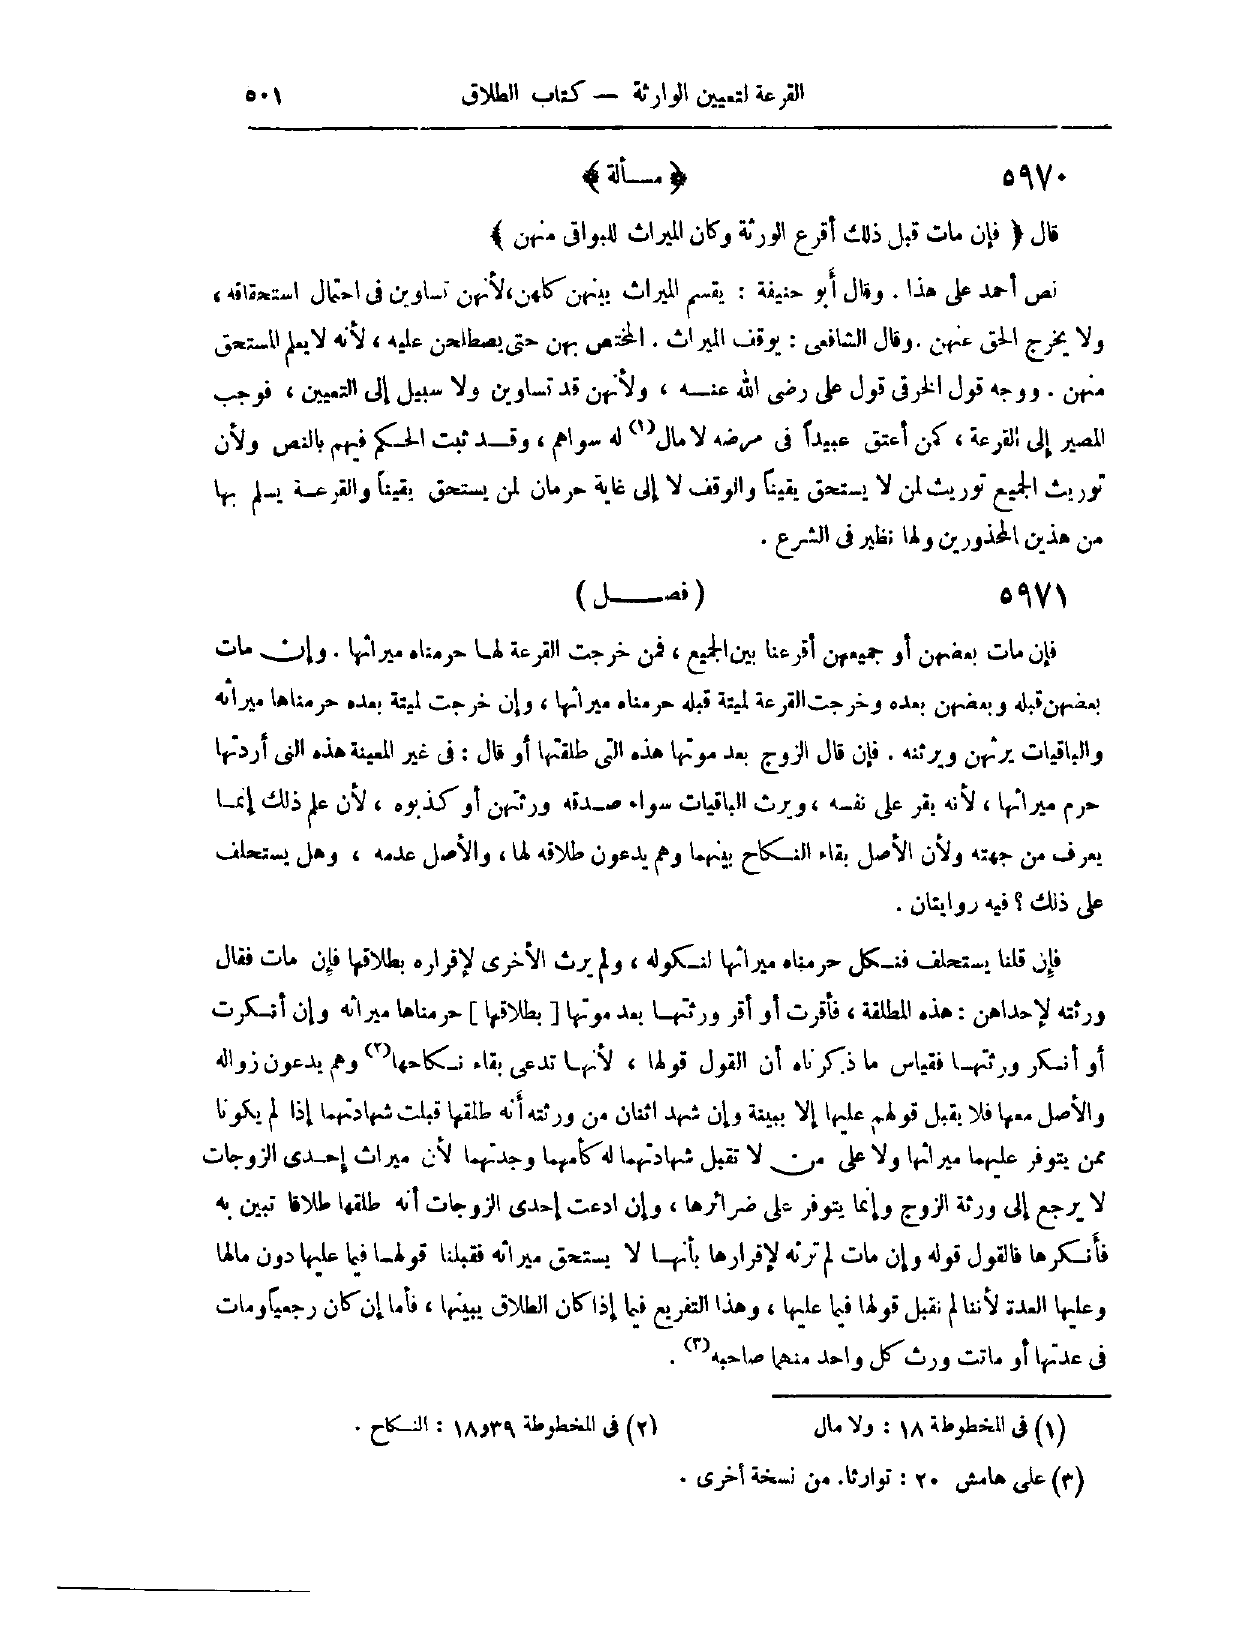 القرعة لتعيين الوارثة — كتاب الطلاق ٥٠١
٥٩٧٠ ﴿ مسألة ﴾
قال ﴿ فإن مات قبل ذلك أقرع الورثة وكان الميراث للبواقى منهن ﴾
نص أحمد على هذا . وقال أبو حنيفة : يقسم الميراث بينهن كلهن، لأنهن تساوين فى احتمال استحقاقه ،
ولا يخرج الحق عنهن . وقال الشافعى : يوقف الميراث . المختص بهن حتى يصطلحن عليه ، لأنه لا يعلم المستحق
منهن . ووجه قول الخرقى قول على رضى الله عنه ، ولأنهن قد تساوين ولا سبيل إلى التعيين ، فوجب
المصير إلى القرعة ، كمن أعتق عبيداً فى مرضه لا مال(١) له سواهم ، وقد ثبت الحكم فيهم بالنص ولأن
توريث الجميع توريث لمن لا يستحق يقيناً والوقف لا إلى غاية حرمان لمن يستحق يقيناً والقرعة يسلم بها
من هذين المحذورين ولها نظير فى الشرع .
٥٩٧١ ( فصل )
فإن مات بعضهن أو جميعهن أقرعنا بين الجميع ، فمن خرجت القرعة لها حرمناه ميراثها . وإن مات
بعضهن قبله وبعضهن بعده وخرجت القرعة لميتة قبله حرمناه ميراثها ، وإن خرجت لميتة بعده حرمناها ميراثه
والباقيات يرثهن ويرثنه . فإن قال الزوج بعد موتها هذه التى طلقتها أو قال : فى غير المعينة هذه التى أردتها
حرم ميراثها ، لأنه يقر على نفسه ، ويرث الباقيات سواء صدقه ورثتهن أو كذبوه ، لأن علم ذلك إنما
يعرف من جهته ولأن الأصل بقاء النكاح بينهما وهم يدعون طلاقه لها ، والأصل عدمه ، وهل يستحلف
على ذلك ؟ فيه روايتان .
فإن قلنا يستحلف فنكل حرمناه ميراثها لنكوله ، ولم يرث الأخرى لإقراره بطلاقها فإن مات فقال
ورثته لإحداهن : هذه المطلقة ، فأقرت أو أقر ورثتها بعد موتها [ بطلاقها ] حرمناها ميراثه وإن أنكرت
أو أنكر ورثتها فقياس ما ذكرناه أن القول قولها ، لأنها تدعى بقاء نكاحها(٢) وهم يدعون زواله
والأصل معها فلا يقبل قولهم عليها إلا ببينة وإن شهد اثنان من ورثته أنه طلقها قبلت شهادتهما إذا لم يكونا
ممن يتوفر عليهما ميراثها ولا على من لا تقبل شهادتهما له كأمهما وجدتهما لأن ميراث إحدى الزوجات
لا يرجع إلى ورثة الزوج وإنما يتوفر على ضرائرها ، وإن ادعت إحدى الزوجات أنه طلقها طلاقا تبين به
فأنكرها فالقول قوله وإن مات لم ترثه لإقرارها بأنها لا يستحق ميراثه فقبلنا قولها فيما عليها دون مالها
وعليها العدة لأننا لم نقبل قولها فيما عليها ، وهذا التفريع فيما إذا كان الطلاق يبينها ، فأما إن كان رجعياً ومات
فى عدتها أو ماتت ورث كل واحد منهما صاحبه(٣) .
(١) فى المخطوطة ١٨ : ولا مال (٢) فى المخطوطة ٣٩و١٨ : النكاح .
(٣) على هامش ٢٠ : توارثا. من نسخة أخرى .